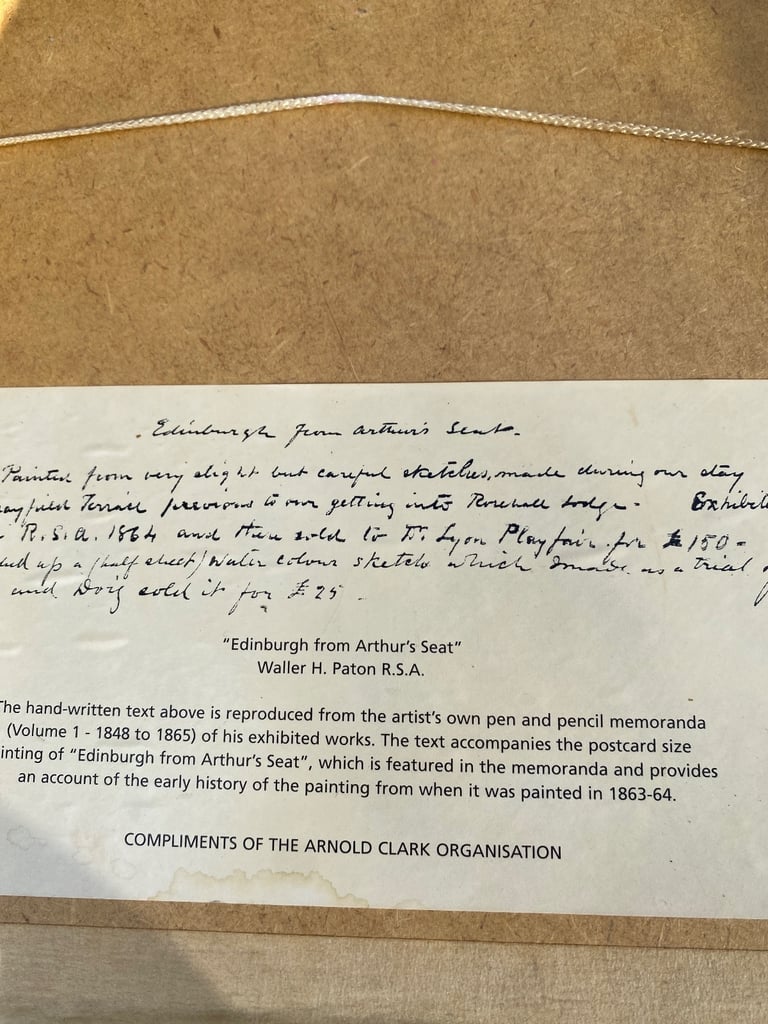 Edinburgh from Arthur's Seat.
Painted from very slight but careful sketches, made during our stay
ayfield Terrace previous to our getting into Rosehall Lodge - Exhibite
R.S.A. 1864 and then sold to Dr. Lyon Playfair for £150 -
up a (half sheet) water colour sketch which I made as a trial
and Doig sold it for £25.
"Edinburgh from Arthur's Seat"
Waller H. Paton R.S.A.
The hand-written text above is reproduced from the artist's own pen and pencil memoranda
(Volume 1 - 1848 to 1865) of his exhibited works. The text accompanies the postcard size
inting of "Edinburgh from Arthur's Seat", which is featured in the memoranda and provides
an account of the early history of the painting from when it was painted in 1863-64.
COMPLIMENTS OF THE ARNOLD CLARK ORGANISATION